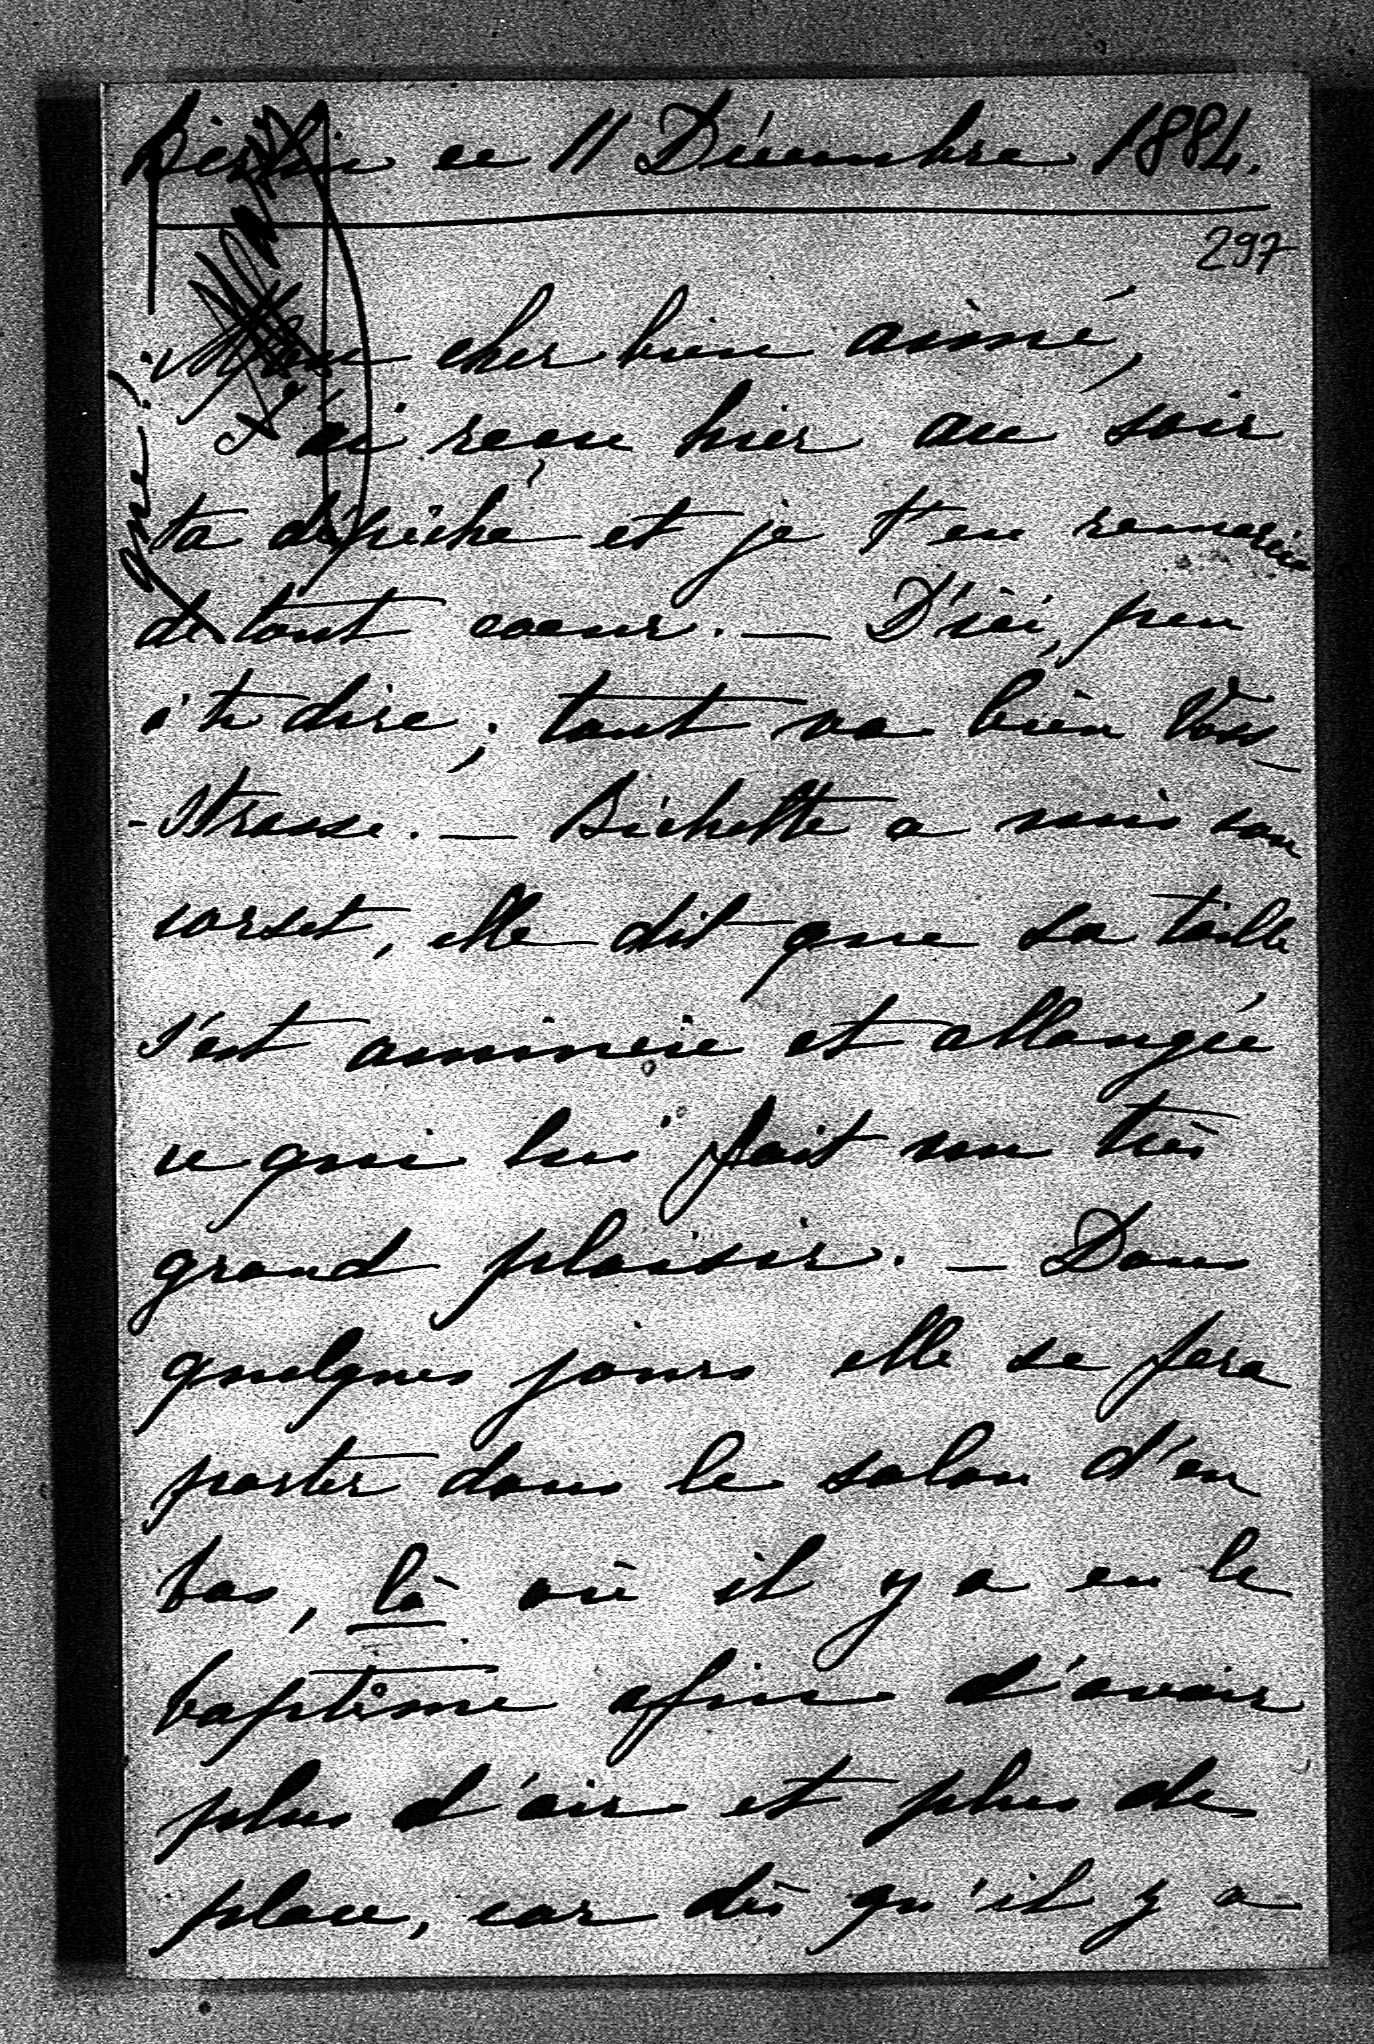 Berlin ce 11 Décembre 1884.
297
Mon cher bien aimé,
J'ai reçu hier au soir
ta dépêche et je t'en remercie
de tout coeur. — D'ici, peu
à te dire; tout va bien Voss-
-Strasse. — Bichette a mis son
corset, elle dit que sa taille
s'est amincie et allongée
ce qui lui fait un très
grand plaisir. — Dans
quelques jours elle se fera
porter dans le salon d'en
bas, là où il y a eu le
baptême afin d'avoir
plus d'air et plus de
place, car dès qu'il y a